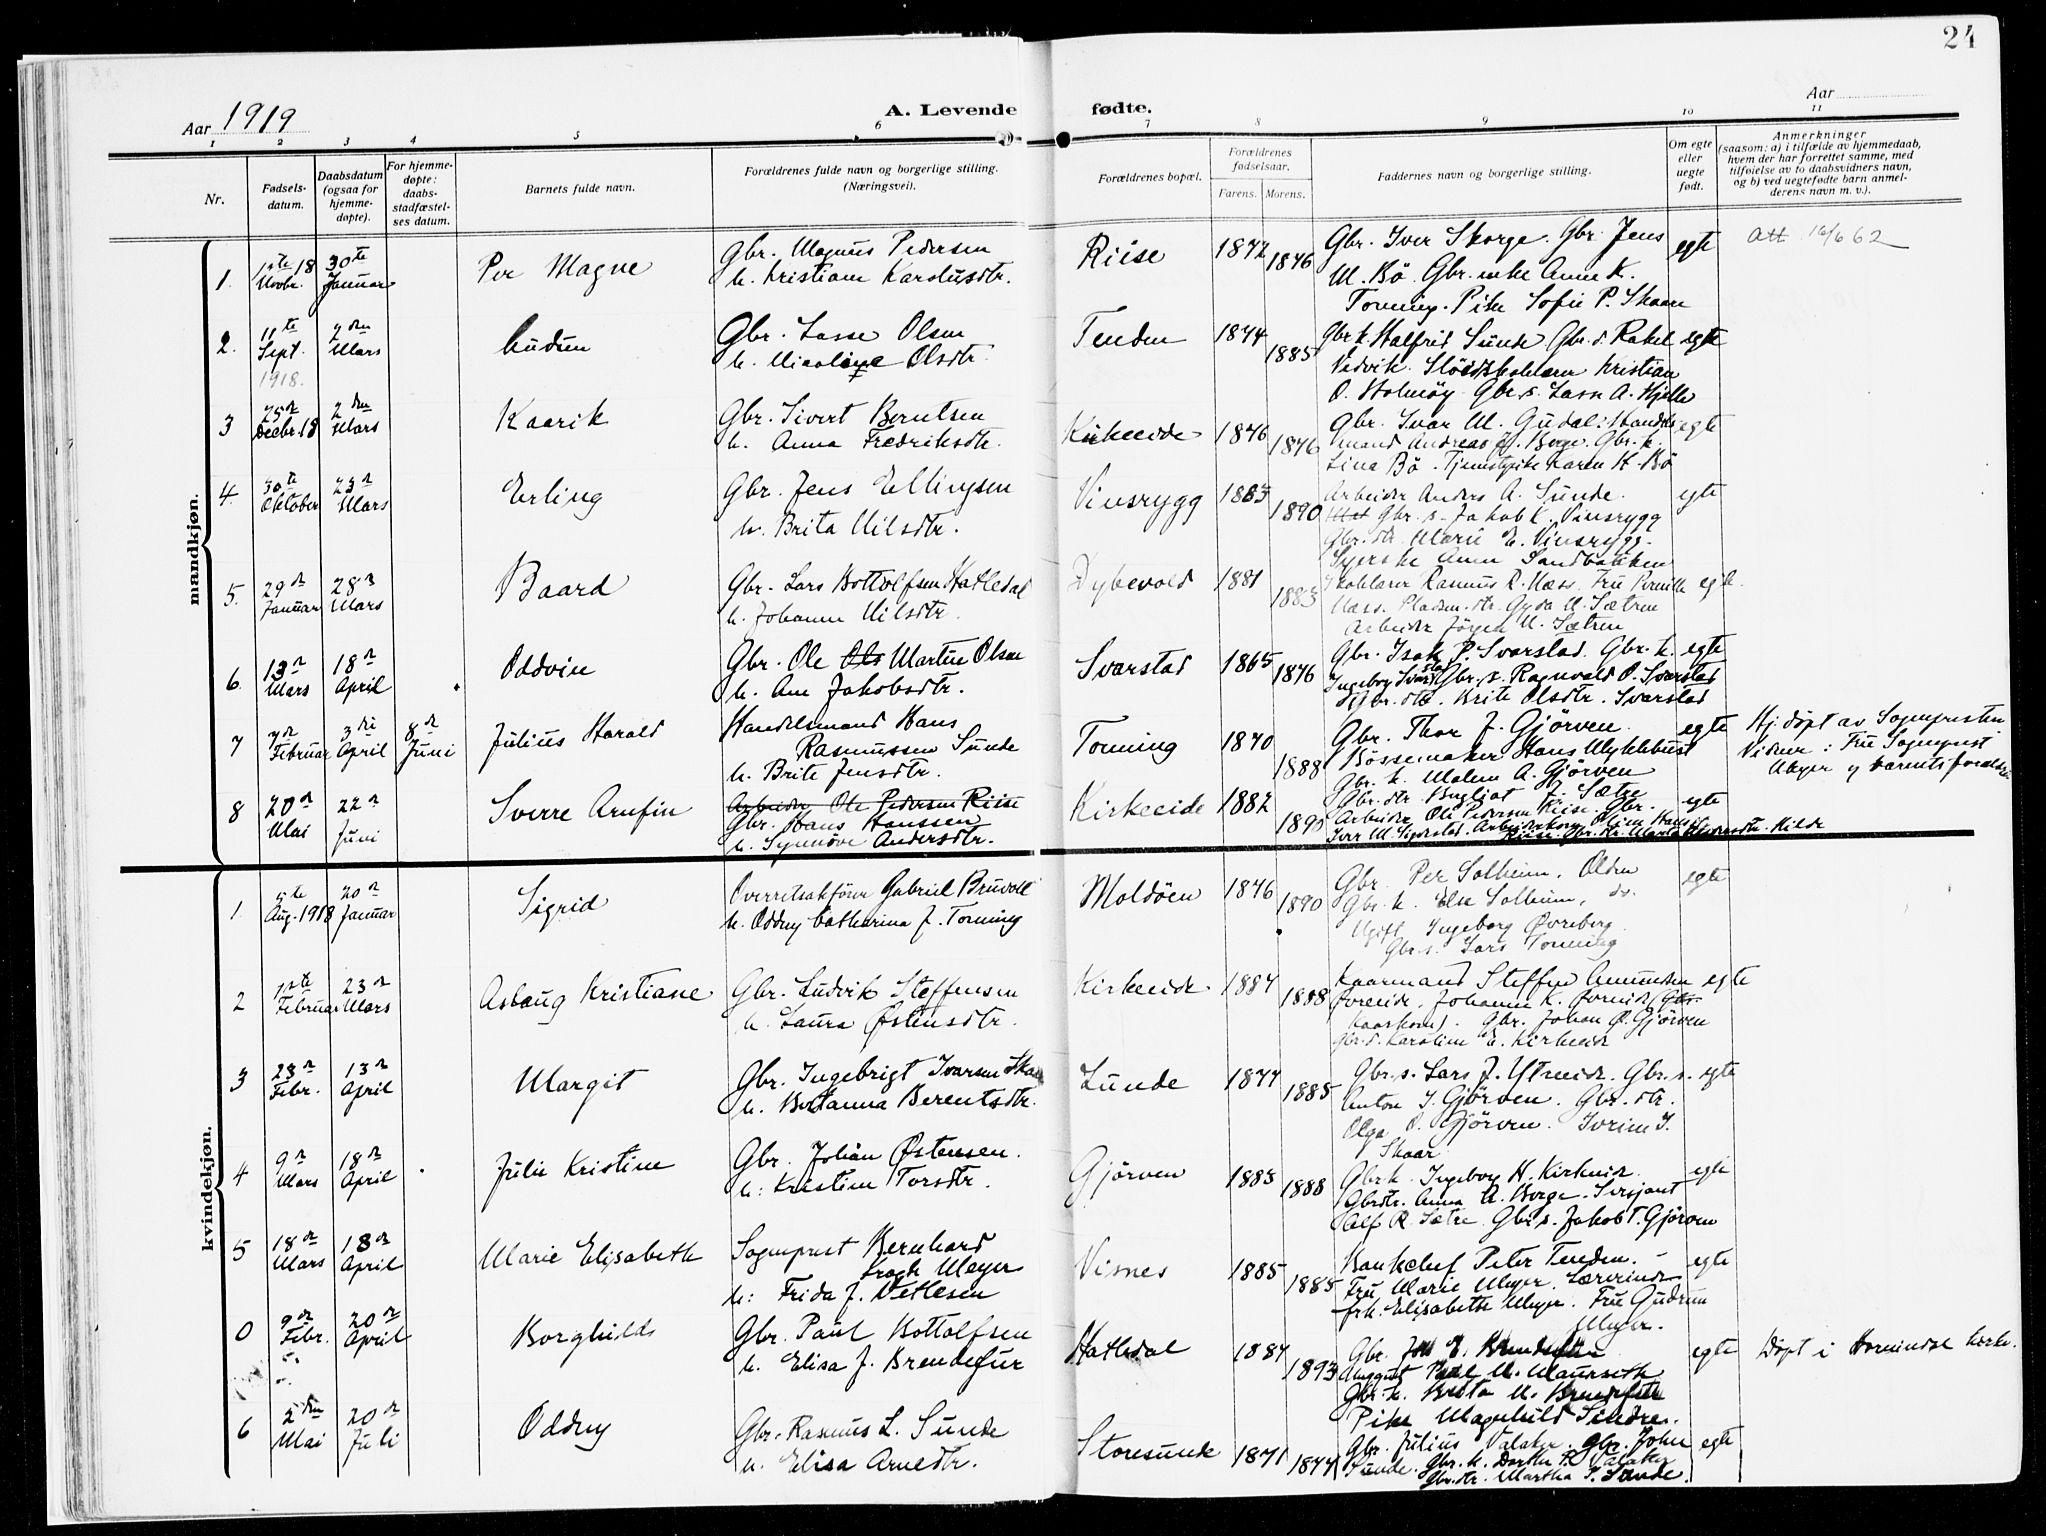 24
Aar 1919
A. Levende fødte.
Aar
1 2 3 4 5 6 7 8 9 10 11
Nr.
Fødsels-
datum.
Daabsdatum
(ogsaa for
hjemme-
døpte).
For hjemme-
døpte:
daabs-
stadfæstel-
ses datum.
Barnets fulde navn.
Forældrenes fulde navn og borgerlige stilling.
(Næringsvei).
Forældrenes bopæl.
Forældrenes
fødselsaar.
Farens. Morens.
Faddernes navn og borgerlige stilling.
Om egte
eller
uegte
født.
Anmerkninger
(saasom: a) i tilfælde av hjemmedaab,
hvem der har forrettet samme, med
tilføielse av to daabsvidners navn,
og b) ved uegtefødte barn anmel-
derens navn m. v.).
mandkjøn.
1. 1ste Novbr. 18 30te Januar
Per Magne
Gbr. Magnus Pedersen
h. Kristiane Karolusdtr.
Riise 1872 1876
Gbr. Iver Skorge. Gbr. Jens
M. Bö. Gbr. enke Anne K.
Tonning. Pike Sofie P. Skaare
egte
Att 16/6 62
2. 11te Sept. 1918. 2den Mars
Audun
Gbr. Lasse Olsen
h. Nicoline Olsdtr.
Tenden 1874 1885
Gbr. k. Halfrid Sunde Gbr. d. Rakel
Vedvik. Slöidskolelærer Kristian
O. Holmöy Gbr. s. Lasse A. Hjelle
egte
3 25de Decbr. 18 2den Mars
Kaarik
Gbr. Sivert Berntsen
h. Anna Fredriksdtr.
Kirkeeide 1876 1876
Gbr. Ivar M. Gudal: Handels
mand Andreas J. Berge. Gbr. k.
Lina Bö. Tjenestpike Karen K. Bö
egte
4. 30te Oktober 23de Mars
Erling
Gbr. Jens Ellingsen
h. Brita Nilsdtr.
Vinsrygg 1883 1890
Arbeider Anders A. Sunde.
Gbr. s. Jakob K. Vinsrygg
Gbr. dtr. Marie E. Vinsrygg.
Syerske Anne Sandbakken
egte
5. 29de Januar 28de Mars
Baard
Gbr. Lars Bottolfsen Hatledal
h. Johanne Nilsdtr.
Dybevold 1881 1883
Skolelærer Rasmus R. Næss. Fru Pernille
Næss. Pladsm. dtr. Gyda N. Sætren
Arbeider Jörgen N. Sætren
egte.
6. 13de Mars 18de April
Oddvin
Gbr. Ole Ols Martin Olsen
h. Ane Jakobsdtr.
Svarstad 1865 1876
Gbr. Isak P. Svarstad. Gbr. k.
Ingeborg Svarstad Gbr. s. Ragnvald O. Svarstad
Gbr. dtr. Brite Olsdtr. Svarstad
egte
7 7de Februar 3die April 8de Juni
Julius Harald
Handelsmand Hans
Rasmussen Sunde
h. Brite Jensdtr.
Tonning 1870 1888
Gbr. Thor J. Gjörven.
Bössemaker Hans Myklebust
Gbr. k. Malene A. Gjörven
Gbr. dtr. Bugliot J. Sætre
egte
Hj. döpt av Sognepresten
Vidner: Fru Sogneprest
Meyer og barnets forældre
8 20de Mai 22de Juni
Sverre Arnfin
Arbeider Ole Pedersen Riise
Gbr. Hans Hanssen
h. Synnöve Andersdtr.
Kirkeeide 1882
Arbeider Ole Pedersen Riise. Gbr.
Iver M. Sigerstad. Arbeiderkone Oline Hansd.
Riise. Gbr. dtr. Marta Andersdtr. Hilde
egte
kvindekjøn.
1. 5te Aug. 1918 20de Januar
Sigrid
Overretssakförer Gabriel Bruvoll
h. Oddny Catharina J. Tonning
Moldöen 1876 1890
Gbr. Per Solheim, Olden
Gbr. k. Elsa Solheim, do.
Ugift Ingeborg Övreberg
Gbr. s. Lars Tonning
egte
2 1ste Februar 23de Mars
Aslaug Kristiane
Gbr. Ludvik Steffensen
h. Laura Östensdtr.
Kirkeeide 1887 1888
Kaarmand Steffen Amundsen
Övreeide. Johanne K. Övreeide (Gbr.
Kaarkone). Gbr. Johan O. Gjörven
Gbr. d. Karoline E. Kirkeeide
egte
3 23de Febr. 13de April
Margit
Gbr. Ingebrigt Ivarsen Skaar
h. Bertanna Berentsdtr.
Lunde 1877 1885
Gbr. s. Lars J. Ytreeide. Gbr. s.
Anton I. Gjörven. Gbr. dtr.
Olga O. Gjörven. Iverine I.
Skaar
egte
4 9de Mars 18de April
Julie Kristine
Gbr. Johan Östensen.
h: Kristine Torsdtr.
Gjörven 1883 1888
Gbr. k. Ingeborg H. Kirkeeide
Gbrdtr. Anna A. Berge. Sersjant
Alf R. Sætre Gbr. s. Jakob T. Gjörven
egte
5 18de Mars 18de April
Marie Elisabeth
Sogneprest Bernhard
Krogh Meyer
h: Frida J. Detlesen
Visnes 1885 1885
Bankchef Peter Tenden.
Fru Marie Meyer. Lærerinde
frk. Elisabeth Meyer. Fru Gudrun
Meyer.
egte
0 9de Febr. 20de April
Borghild
Gbr. Paul Bottolfsen
h. Elisa J. Brendefur
Hatledal 1887 1893
Gbr.
August Paul M. Maurseth
Gbr. k. Brita M. Brendefur
Pike Magnhild Sindre.
egte
Döpt i Hornindal kirke.
6 2den Mai 20de Juli
Oddny
Gbr. Rasmus L. Sunde
h. Elisa Arnedtr.
Storesunde 1871 1877
Gbr. Julius Valaker. Gbr. John
Sunde. Gbr. k. Dorthe P. Valaker
Gbr. dtr. Martha I. Sunde.
egte